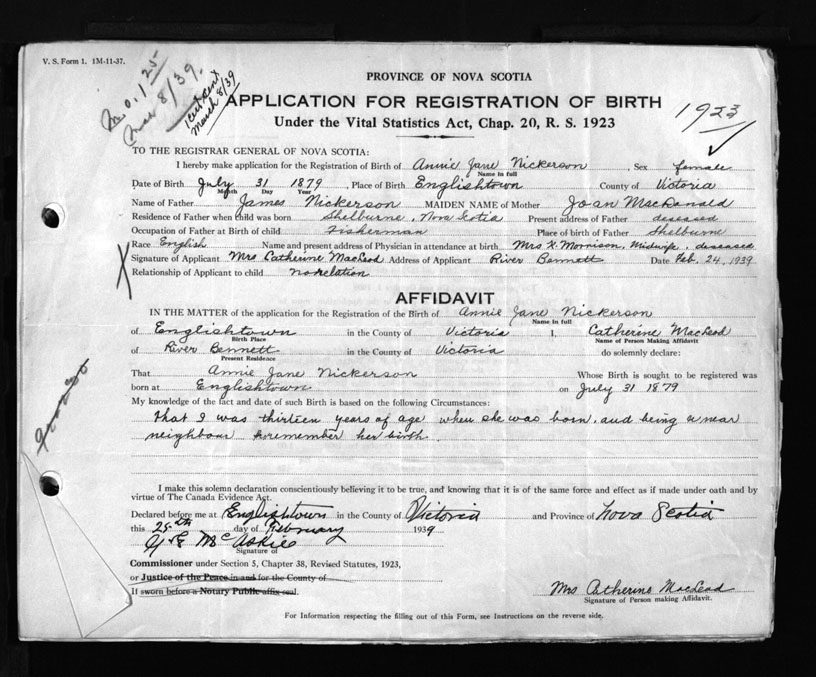 V. S. Form 1. 1M-11-37.
M.O. 1.25
Mar 8/39.
March 8/39
PROVINCE OF NOVA SCOTIA
APPLICATION FOR REGISTRATION OF BIRTH
Under the Vital Statistics Act, Chap. 20, R. S. 1923
1923
TO THE REGISTRAR GENERAL OF NOVA SCOTIA:
I hereby make application for the Registration of Birth of Annie Jane Nickerson, Sex female
Name in full
Date of Birth July 31 1879, Place of Birth Englishtown County of Victoria
Month Day Year
Name of Father James Nickerson MAIDEN NAME of Mother Joan MacDonald
Residence of Father when child was born Shelburne, Nova Scotia Present address of Father deseased
Occupation of Father at Birth of child Fisherman Place of birth of Father Shelburne
Race English Name and present address of Physician in attendance at birth Mrs K. Morrison, Midwife, deseased
X Signature of Applicant Mrs Catherine MacLeod Address of Applicant River Bennett Date Feb. 24, 1939
Relationship of Applicant to child no relation
AFFIDAVIT
IN THE MATTER of the application for the Registration of the Birth of Annie Jane Nickerson
Name in full
of Englishtown in the County of Victoria I, Catherine MacLeod
Birth Place Name of Person Making Affidavit
of River Bennett in the County of Victoria do solemnly declare:
Present Residence
That Annie Jane Nickerson Whose Birth is sought to be registered was
born at Englishtown on July 31 1879
My knowledge of the fact and date of such Birth is based on the following Circumstances:
that I was thirteen years of age when she was born, and being a near
neighbour remember her birth.
I make this solemn declaration conscientiously believing it to be true, and knowing that it is of the same force and effect as if made under oath and by
virtue of The Canada Evidence Act.
Declared before me at Englishtown in the County of Victoria and Province of Nova Scotia
this 25th day of February 1939
McAskill
Signature of
Commissioner under Section 5, Chapter 38, Revised Statutes, 1923,
or Justice of the Peace in and for the County of
If sworn before a Notary Public affix seal.
Mrs Catherine MacLeod
Signature of Person making Affidavit.
For Information respecting the filling out of this Form, see Instructions on the reverse side.